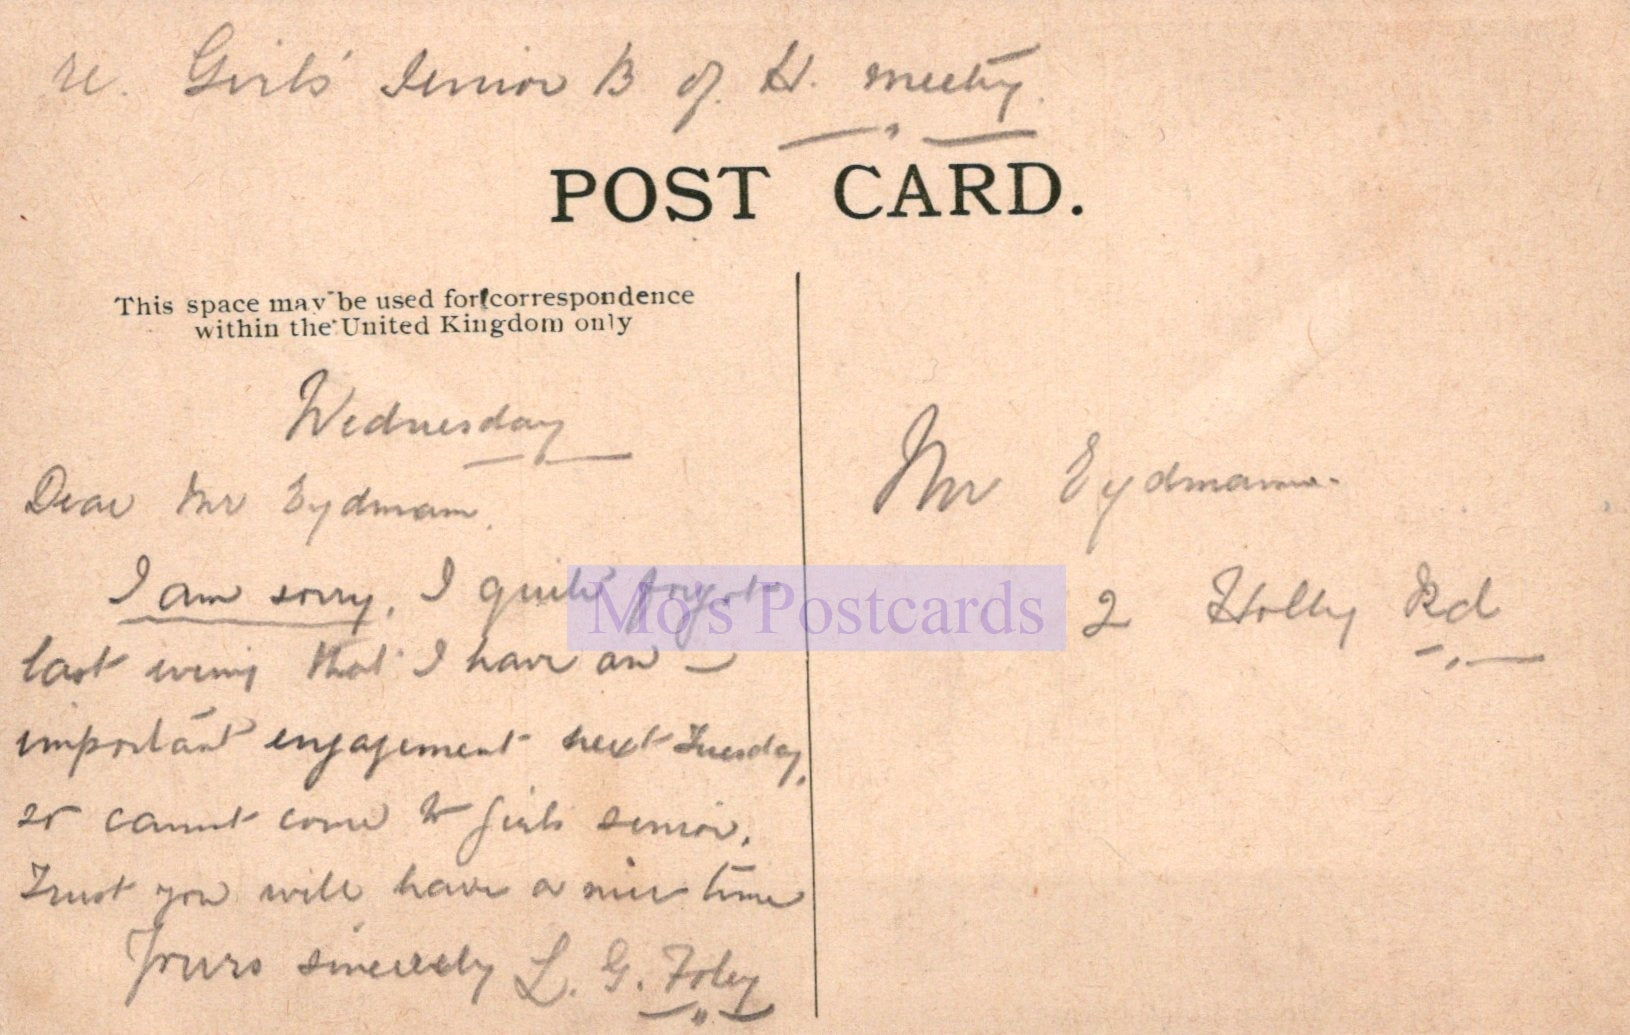 re. Girls' Senior B of H. meeting.
POST CARD.
This space may be used for correspondence
within the United Kingdom only
Wednesday
Dear Mr Eydmann.
I am sorry, I quite forgot
last evening that I have an
important engagement next Tuesday,
so cannot come to Girls senior.
Trust you will have a nice time
Yours sincerely L. G. Foley
Mr Eydmann.
2 Holly Rd
Mo's Postcards